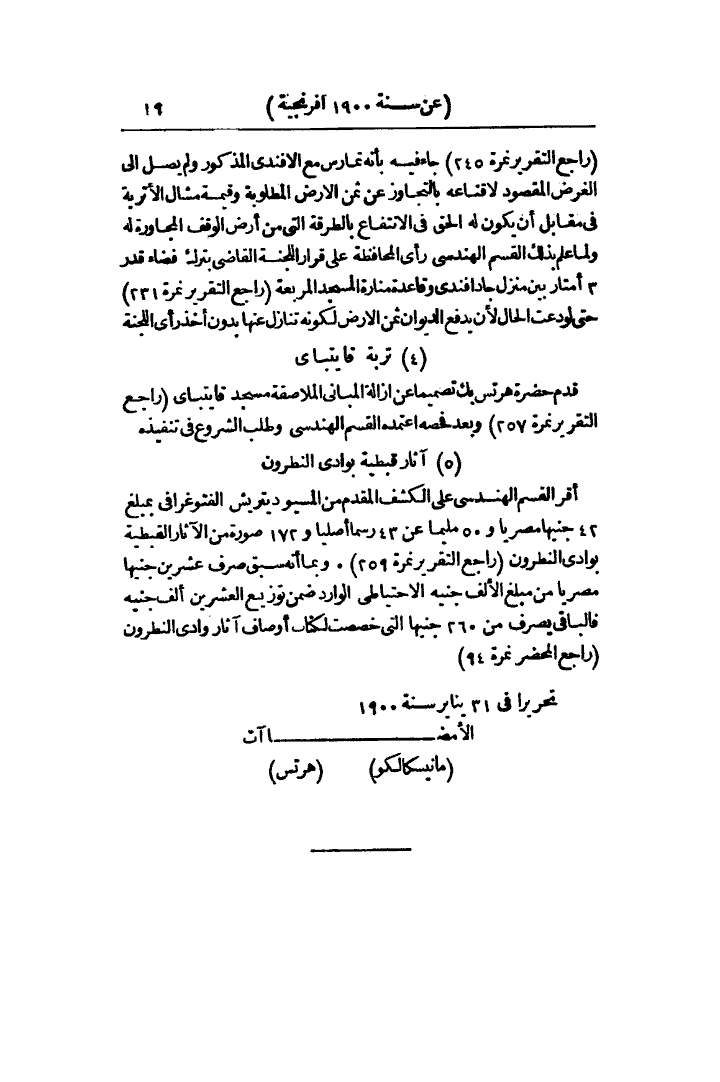 (عن سنة ١٩٠٠ افرنجية) ١٩
(راجع التقرير نمرة ٢٤٥) جاء فيه بأنه تمارس مع الافندى المذكور ولم يصل الى
الغرض المقصود لاقناعه بالتجاوز عن ثمن الارض المطلوبة وقيمة مشال الأتربة
فى مقابل أن يكون له الحق فى الانتفاع بالطرقة التى من أرض الوقف المجاورة له
ولما علم بذلك القسم الهندسى رأى المحافظة على قرار اللجنة القاضى بترك فضاء قدر
٣ أمتار بين منزل جاد افندى وقاعدة منارة المسجد المربعة (راجع التقرير نمرة ٢٣١)
حتى لو دعت الحال لأن يدفع الديوان ثمن الارض لكونه تنازل عنها بدون أخذ رأى اللجنة
(٤) تربة قايتباى
قدم حضرة هرتس بك تصميما عن ازالة المبانى الملاصقة مسجد قايتباى (راجع
التقرير نمرة ٢٥٧) وبعد فحصه اعتمده القسم الهندسى وطلب الشروع فى تنفيذه
(٥) آثار قبطية بوادى النطرون
أقر القسم الهندسى على الكشف المقدم من المسيو ديتريش الفتوغرافى بمبلغ
٤٢ جنيها مصريا و ٥٠ مليما عن ٤٣ رسما أصليا و ١٧٢ صورة من الآثار القبطية
بوادى النطرون (راجع التقرير نمرة ٢٥٩) . وبما أنه سبق صرف عشرين جنيها
مصريا من مبلغ الألف جنيه الاحتياطى الوارد ضمن توزيع العشرين ألف جنيه
فالباقى يصرف من ٢٦٠ جنيها التى خصصت لكتاب أوصاف آثار وادى النطرون
(راجع المحضر نمرة ٩٤)
تحريرا فى ٣١ يناير سنة ١٩٠٠
الأمضـــــاآت
(مانيسكالكو) (هرتس)